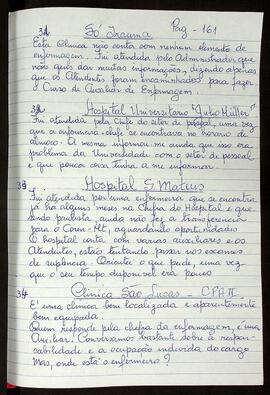 31 Só Trauma Pag - 161
Esta Clínica não conta com nenhum elemento de
enfermagem. Fui atendida pelo Administrador que
não quis dar muitas informações, dizendo apenas
que os Atendentes foram encaminhados para fazer
o Curso de Auxiliar de Enfermagem.
32 Hospital Universitario "Julio Müller"
Fui atendida pelo chefe do setor de pessoal, uma vez
que a enfermeira-chefe se encontrava no horario de
almoço. A mesma informou-me ainda que isso era
problema da Universidade com o setor de pessoal
e que pouca coisa tinha a me informar.
33 Hospital S. Mateus
Fui atendida por uma enfermeira que se encontra
já ha alguns meses na Chefia do Hospital e que
sendo paulista ainda não fez a transferencia
para o Coren-Mt, aguardando oportunidades.
O hospital conta com varias auxiliares e os
Atendentes, estão tentando passar nos exames
de suplência. Orientei o que pude, uma vez
que o seu tempo disponível era pouco
34 Clínica São Lucas - CPA II
É uma clínica bem localizada e aparentemente
bem equipada.
Quem responde pela chefia da enfermagem, é uma
Auxiliar. Conversamos bastante sobre a respon-
sabilidade e a ocupação indevida do cargo
Mas, onde está o enfermeiro?